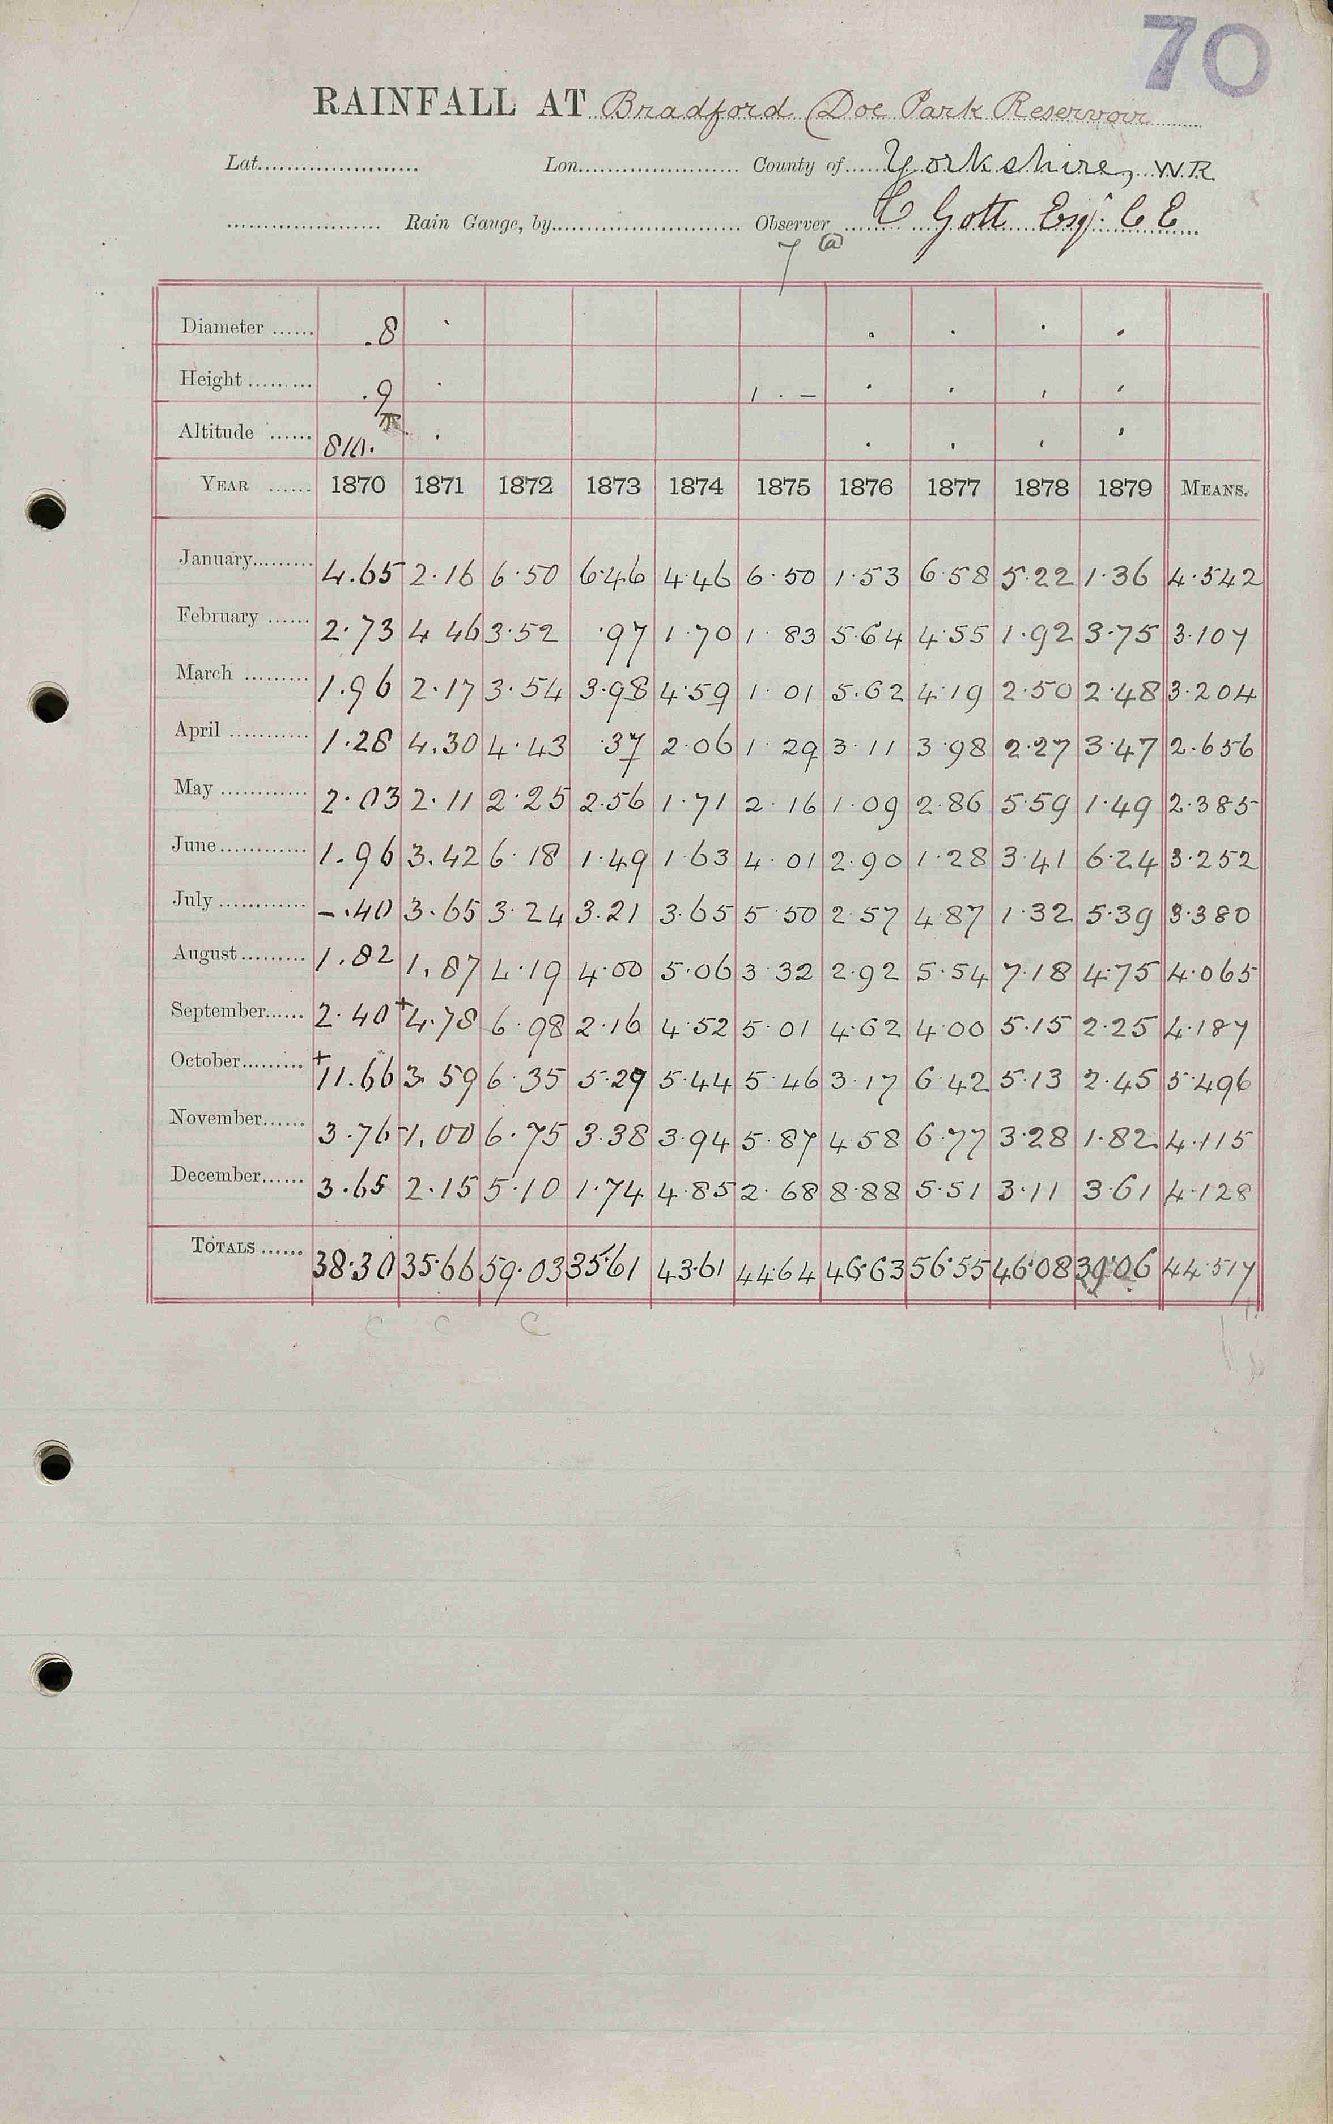 70
RAINFALL AT Bradford (Doe Park Reservoir
Lat. Lon. County of Yorkshire, W.R
Rain Gauge, by Observer C Gott Esqr. C E
7 (a)
Diameter 8
Height 9
Altitude 810.
YEAR 1870 1871 1872 1873 1874 1875 1876 1877 1878 1879 MEANS.
January 4.65 2.16 6.50 6.46 4.46 6.50 1.53 6.58 5.22 1.36 4.542
February 2.73 4 46 3.52 .97 1.70 1 83 5.64 4.55 1.92 3.75 3.107
March 1.96 2.17 3.54 3.98 4.59 1 01 5.62 4.19 2.50 2.48 3.204
April 1.28 4.30 4.43 .37 2.06 1 29 3 11 3 98 2.27 3.47 2.656
May 2.03 2.11 2.25 2.56 1.71 2 16 1.09 2.86 5.59 1.49 2.385
June 1.96 3.42 6.18 1.49 1.63 4 01 2.90 1.28 3.41 6.24 3.252
July -.40 3.65 3.24 3.21 3.65 5 50 2.57 4.87 1.32 5.39 3.380
August 1.82 1.87 4.19 4.00 5.06 3 32 2.92 5.54 7.18 4.75 4.065
September 2.40 +4.78 6.98 2.16 4.52 5.01 4.62 4.00 5.15 2.25 4.187
October +11.66 3.59 6.35 5.29 5.44 5.46 3.17 6.42 5.13 2.45 5.496
November 3.76 1.00 6.75 3.38 3.94 5.87 4.58 6.77 3.28 1.82 4.115
December 3.65 2.15 5.10 1.74 4.85 2.68 8.88 5.51 3.11 3.61 4.128
TOTALS 38.30 35.66 59.03 35.61 43.61 44.64 46.63 56.55 46.08 39.06 44.517
c c c